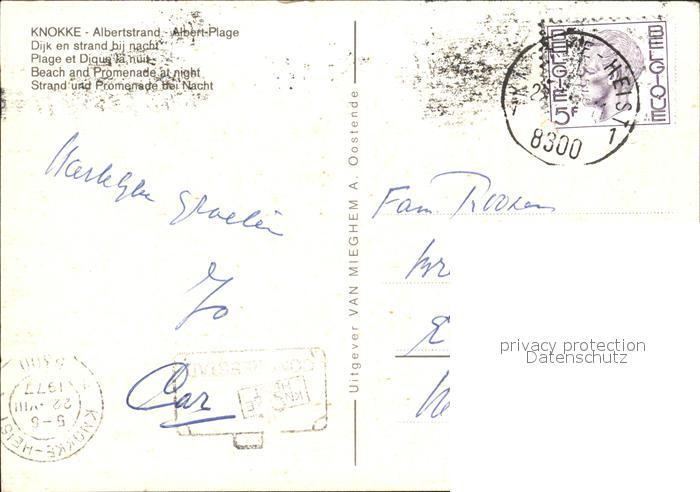 KNOKKE - Albertstrand - Albert-Plage
Dijk en strand bij nacht
Plage et Digue la nuit
Beach and Promenade at night
Strand und Promenade bei Nacht
BELGIE 5F BELGIQUE
KNOKKE-HEIST
8300 1
Uitgever VAN MIEGHEM A. Oostende
Hartelijke groeten
Jo
Car
Fam.
privacy protection
Datenschutz
8300
1977
22-VIII
5-6
KNOKKE-HEIST